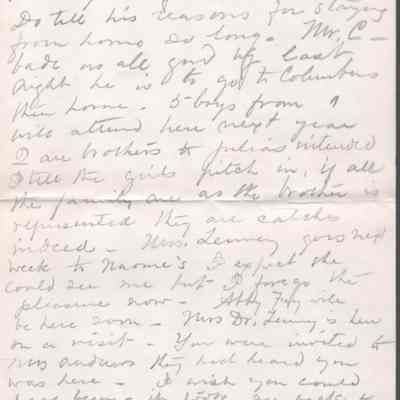 Do tell his reasons for staying
from home so long. Mr. C—
bade us all good by last
night he is to go to Columbus
then home. 5 boys from
will attend here next year
2 are brothers to Julias intended
I tell the girls pitch in, if all
the family are as the brother is
represented they are catches
indeed — Mrs. Lenney goes next
week to Naomi's I expect she
could see me but I forego the
pleasure now — Abby Fry will
be here soon — Mrs Dr. Lenny is here
on a visit — You were invited to
Mrs Andrews they had heard you
was here — I wish you could